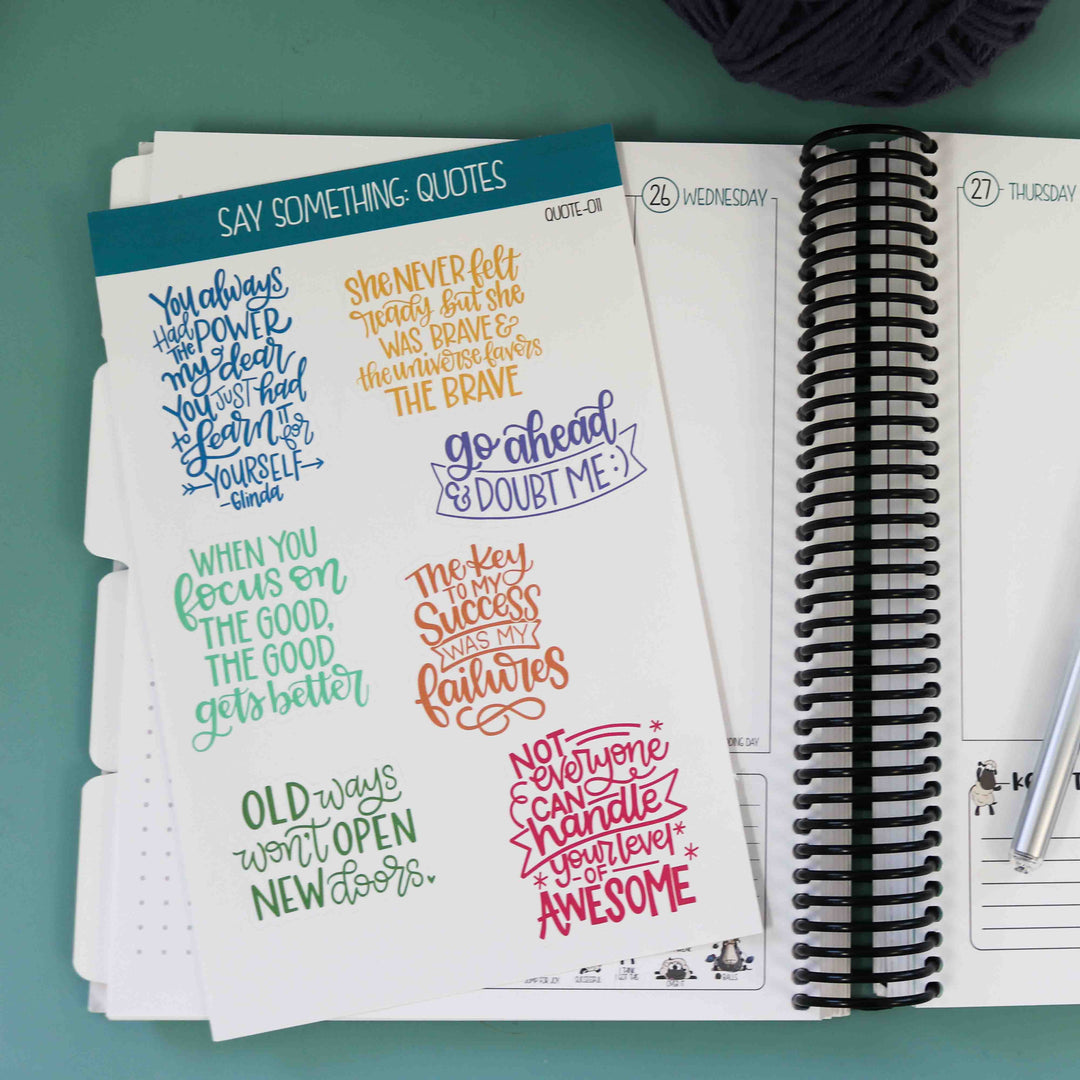 SAY SOMETHING: QUOTES
QUOTE-011
You always
Had POWER
THE
my dear
YOU JUST had
to Learn IT
for
YOURSELF
-Glinda
she NEVER felt
ready but she
WAS BRAVE &
the universe favors
THE BRAVE
go ahead
& DOUBT ME :)
WHEN YOU
focus on
THE GOOD,
THE GOOD
gets better
The Key
TO MY
Success
WAS MY
failures
OLD ways
won't OPEN
NEW doors.
NOT
everyone
CAN
handle
your level
-OF-
AWESOME
26 WEDNESDAY
27 THURSDAY
DING DAY
JUMP FOR JOY
I THINK
I GOT THIS
OVER IT
BALLS